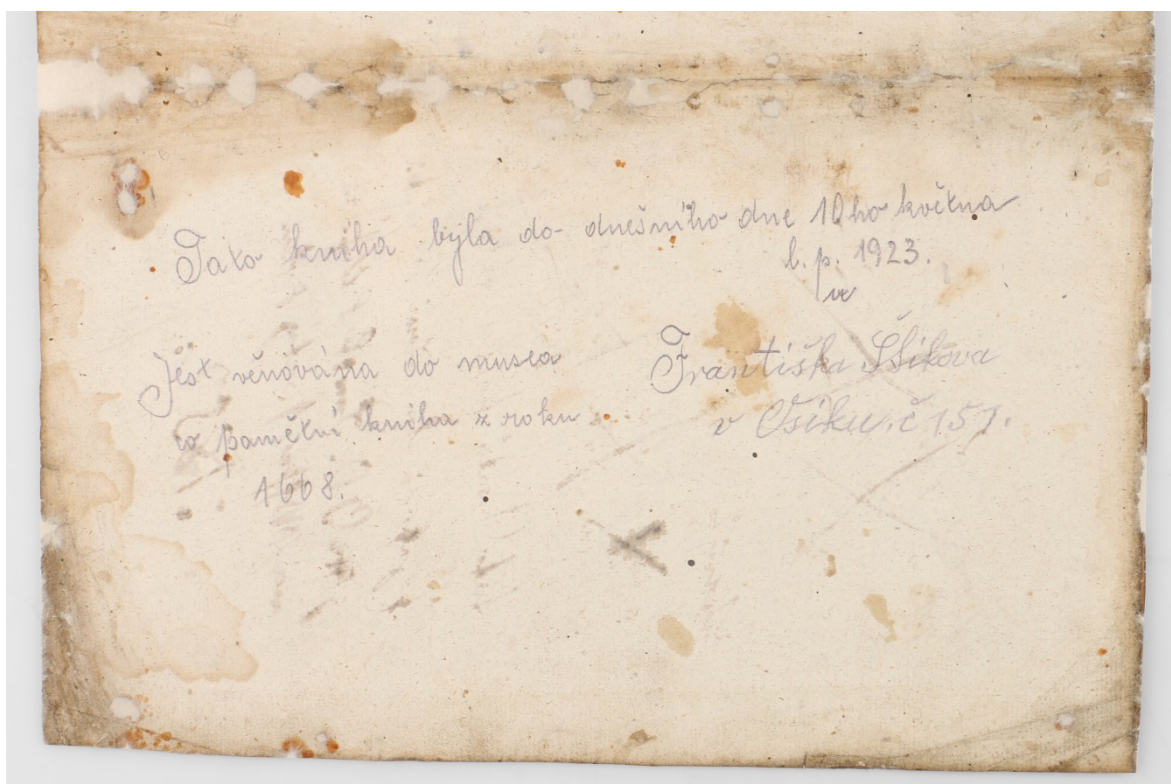 Tato kniha byla do dnešního dne 10ho května
l. p. 1923.
Jest věnována do musea
co pamětní kniha z roku
1668.
Františka
v Osiku č 151.